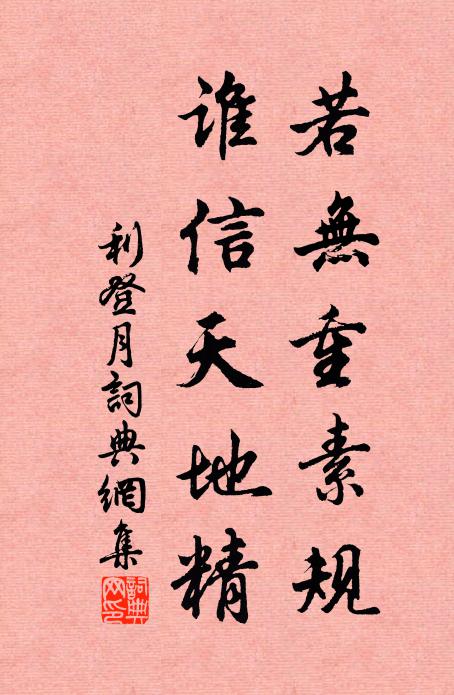 若無重素規
誰信天地精
利登月詞典網集
詞典網印